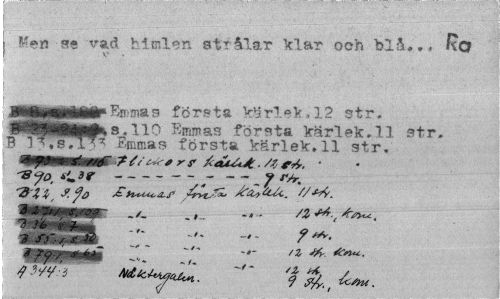 Men se vad himlen strålar klar och blå... Ra
B 8,s.188 Emmas första kärlek.12 str.
s.110 Emmas första kärlek.11 str.
B 13,s.133 Emmas första kärlek.11 str.
B 93 s.116 Flickors kärlek. 12 str.
B 90, s. 38 - - - - - - - - 9 str.
B 22, s.90 Emmas första kärlek. 11 str.
-"- -"- -"- 12 str., kom.
B 36 -"- -"- -"- 9 str.
-"- -"- -"- 12 str. kom.
B 79 -"- -"- -"- 12 str.
A 344:3 Näktergalen. 9 str., kom.